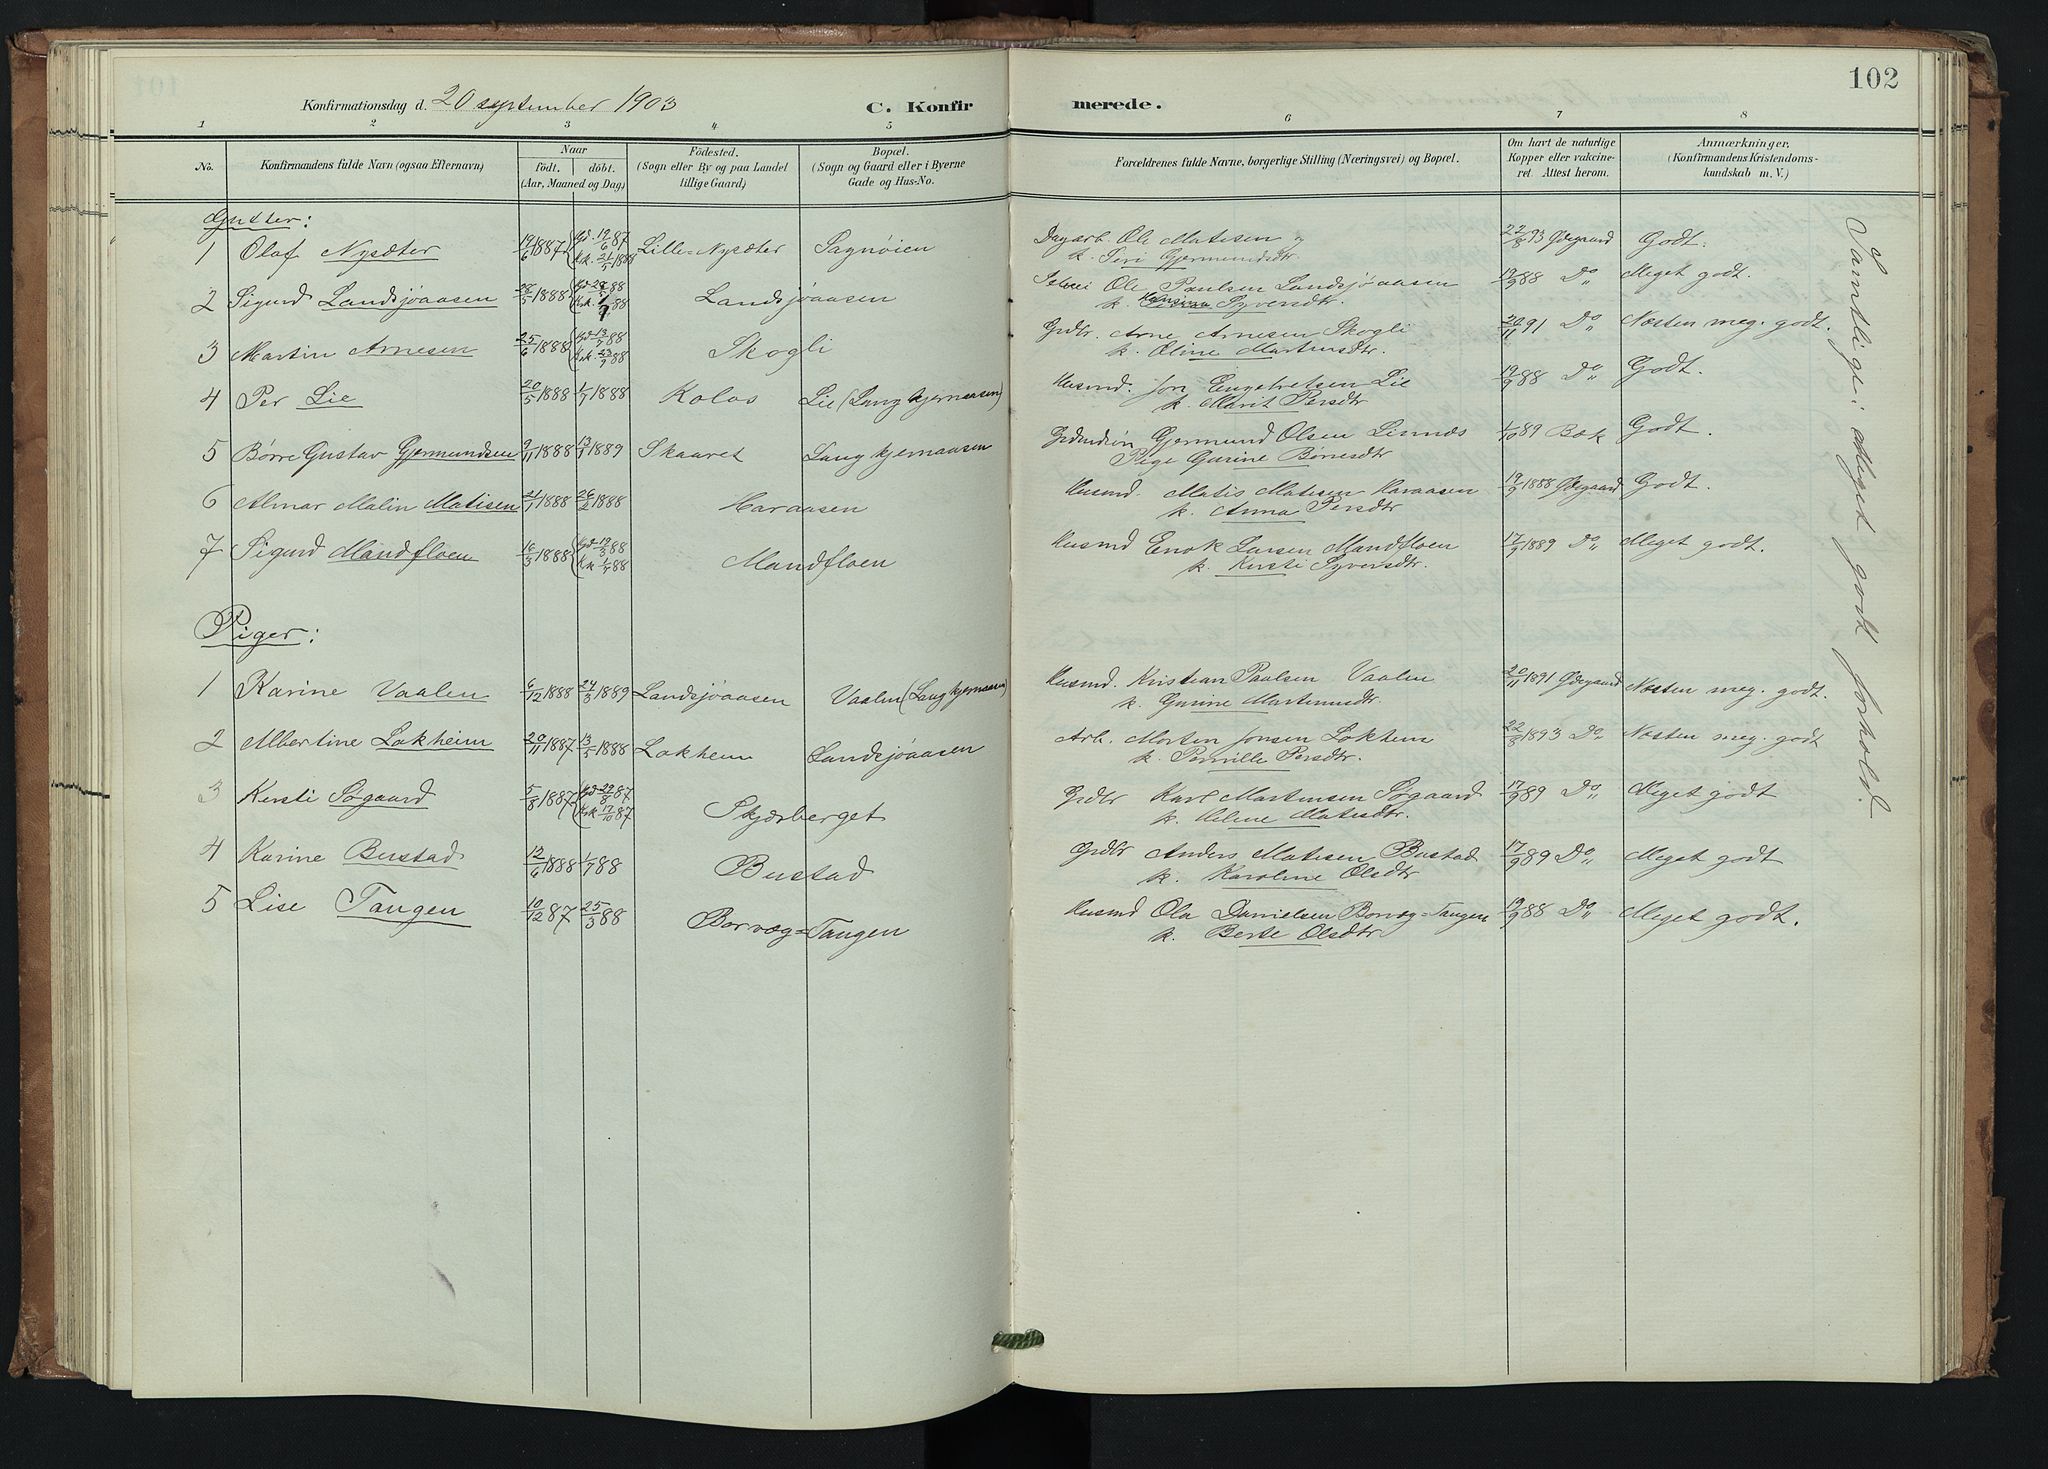 102
Konfirmationsdag d. 20 september 1903 C. Konfirmerede.
1 2 3 4 5 6 7 8
No. Konfirmandens fulde Navn (ogsaa Efternavn) Naar Födt. döbt. (Aar, Maaned og Dag) Födested. (Sogn eller By og paa Landet tillige Gaard) Bopæl. (Sogn og Gaard eller i Byerne Gade og Hus-No. Forældrenes fulde Navne, borgerlige Stilling (Næringsvei) og Bopæl. Om havt de naturlige Kopper eller vakcineret. Attest herom. Anmærkninger. (Konfirmandens Kristendomskundskab m. V.)
Gutter:
1 Olaf Nysæter 19/6 1887 Gd. 19/6 87 Kk. 21/5 1888 Lille-Nysæter Sagnøien Dagarb. Ole Matisen og k. Siri Gjermundsdtr 22/8 93 Ødegaard Godt.
2 Sigurd Landsjøaasen 28/5 1888 Landsjøaasen Ole Paulsen Landsjøaasen k. Syversdtr. 19/9 88 Do Meget godt.
3 Martin Arnesen 25/6 1888 Gd. 13/7 88 Kk. 23/9 88 Skogli Grdbr. Arne Arnesen Skogli k. Oline Martinusdtr. 20/11 91 Do Næsten meg. godt.
4 Per Lie 20/5 1888 1/7 1888 Kolos Lie (Langkjernaasen) Husmd. Jon Engebretsen Lie k. Marit Persdtr. 19/9 88 Do Godt.
5 Børre Gustav Gjermundsen 9/11 1888 13/1 1889 Skaaret Langkjernaasen Gjermund Olsen Linnæs Pige Gurine Børresdtr 1/10 89 Bæk Godt.
6 Almar Malin Matisen 21/1 1888 26/2 1888 Haraasen Husmd. Matis Matisen Haraasen k. Anna Persdtr 19/9 1888 Ødegaard Godt.
7 Sigurd Mandfloen 16/3 1888 Gd. 19/3 88 Kk. 1/7 88 Mandfloen Husmd Enok Larsen Mandfloen k. Kersti Syversdtr. 17/9 1889 Do Meget godt.
Piger:
1 Karine Vaalen 6/12 1888 24/3 1889 Landsjøaasen Vaalen (Langkjernaasen) Husmd. Kristian Paalsen Vaalen k. Gurine Martinusdtr. 20/11 1891 Ødegaard Næsten meg. godt.
2 Albertine Løkheim 20/11 1887 13/5 1888 Løkheim Landsjøaasen Arb. Morten Jonsen Løkhem k. Pernille Persdtr. 22/8 1893 Do Næsten meg. godt
3 Kersti Søgaard 5/8 1887 Gd. 29/8 87 Kk. 17/10 87 Skjærberget Grdbr Karl Martinsen Søgaard k. Helene Matisdtr. 17/9 89 Do Meget godt
4 Karine Bustad 12/6 1888 1/7 88 Bustad Grdbr Anders Matisen Bustad k. Karoline Olsdtr 17/9 89 Do Meget godt
5 Lise Tangen 10/12 87 25/3 88 Borvæg-Tangen Husmd Ola Danielsen Borvæg-Tangen k. Berte Olsdtr 19/9 88 Do Meget godt.
Samtlige: Meget godt forhold.